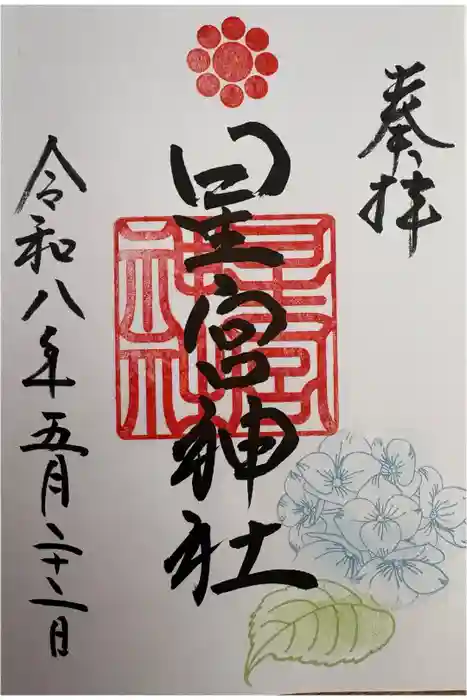 奉拝
星宮神社
星宮神社
令和八年五月二十二日